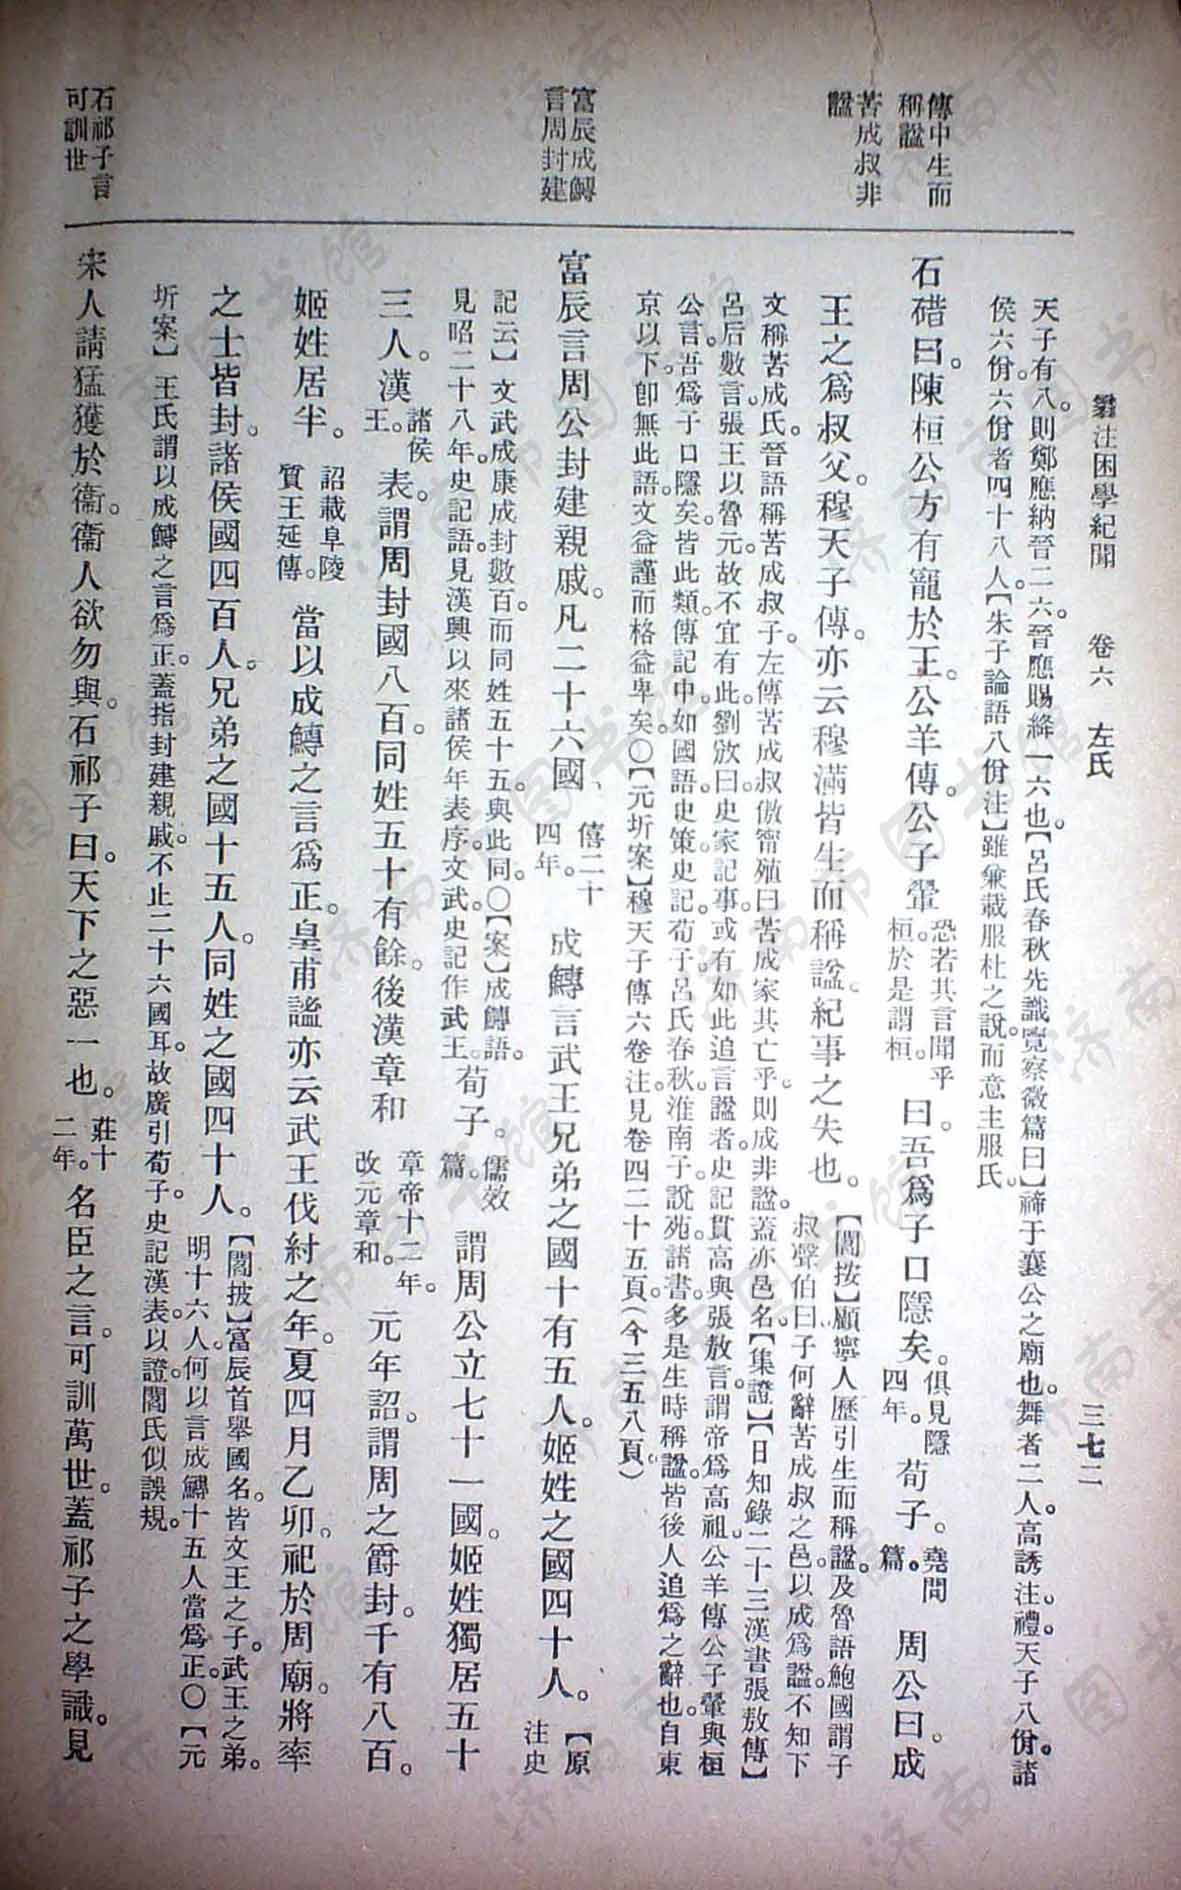 翁注困學紀聞　卷六　左氏　三七二
傳中生而
稱諡
苦成叔非
諡
富辰成鱄
言周封建
石祁子言
可訓世
天子有八。則鄭應納晉二六。晉應賜絳一六也。【呂氏春秋先識覽察微篇曰】禘于襄公之廟也。舞者二人。高誘注。禮。天子八佾。諸
侯六佾。六佾者四十八人。【朱子論語八佾注】雖兼載服杜之說。而意主服氏。
石碏曰。陳桓公方有寵於王。公羊傳。公子翬恐若其言聞乎
桓。於是謂桓。曰。吾爲子口隱矣。俱見隱
四年。荀子。堯問
篇。周公曰。成
王之爲叔父。穆天子傳。亦云穆滿。皆生而稱諡。紀事之失也。【閻按】顧寧人歷引生而稱諡。及魯語鮑國謂子
叔聲伯曰。子何辭苦成叔之邑。以成爲諡。不知下
文稱苦成氏。晉語稱苦成叔子。左傳苦成叔傲。甯殖曰。苦成家其亡乎。則成非諡。蓋亦邑名。【集證】【日知錄二十三漢書張敖傳】
呂后數言。張王以魯元。故不宜有此。劉攽曰。史家記事。或有如此追言諡者。史記貫高與張敖言。謂帝爲高祖。公羊傳公子翬與桓
公言。吾爲子口隱矣。皆此類。傳記中。如國語。史策。史記。荀子。呂氏春秋。淮南子。說苑。諸書。多是生時稱諡。皆後人追爲之辭也。自東
京以下。卽無此語。文益謹而格益卑矣。〇【元圻案】穆天子傳六卷注。見卷四二十五頁。(今三五八頁)
富辰言周公封建親戚。凡二十六國、僖二十
四年。成鱄言武王兄弟之國十有五人。姬姓之國四十人。【原
注史
記云】文武成康成封數百。而同姓五十五。與此同。〇【案】成鱄語。
見昭二十八年。史記語。見漢興以來諸侯年表序。文武。史記作武王。荀子。儒效
篇。謂周公立七十一國。姬姓獨居五十
三人。漢諸侯
王。表。謂周封國八百。同姓五十有餘。後漢章和章帝十二年。
改元章和。元年詔。謂周之爵封。千有八百。
姬姓居半。詔載阜陵
質王延傳。當以成鱄之言爲正。皇甫謐亦云武王伐紂之年。夏四月乙卯。祀於周廟。將率
之士皆封。諸侯國四百人。兄弟之國十五人。同姓之國四十人。【閻按】富辰首舉國名。皆文王之子。武王之弟。
明十六人。何以言成鱄十五人當爲正。〇【元
圻案】王氏謂以成鱄之言爲正。蓋指封建親戚。不止二十六國耳。故廣引荀子。史記。漢表。以證。閻氏似誤規。
宋人請猛獲於衞。衞人欲勿與。石祁子曰。天下之惡一也。莊十
二年。名臣之言。可訓萬世。蓋祁子之學識。見